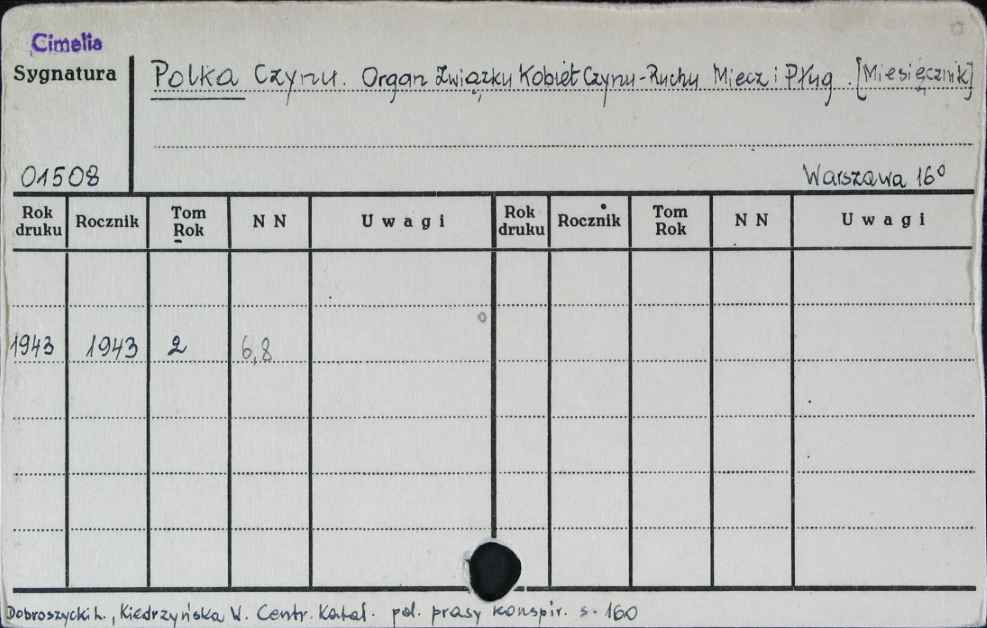 Cimelia
Sygnatura
Polka Czynu. Organ Związku Kobiet Czynu-Ruchu Miecz i Pług. [Miesięcznik]
01508
Warszawa 16°
Rok druku Rocznik Tom Rok N N Uwagi Rok druku Rocznik Tom Rok N N Uwagi
1943 1943 2 6,8
Dobroszycki L., Kiedrzyńska W. Centr. Katal. pol. prasy konspir. s. 160